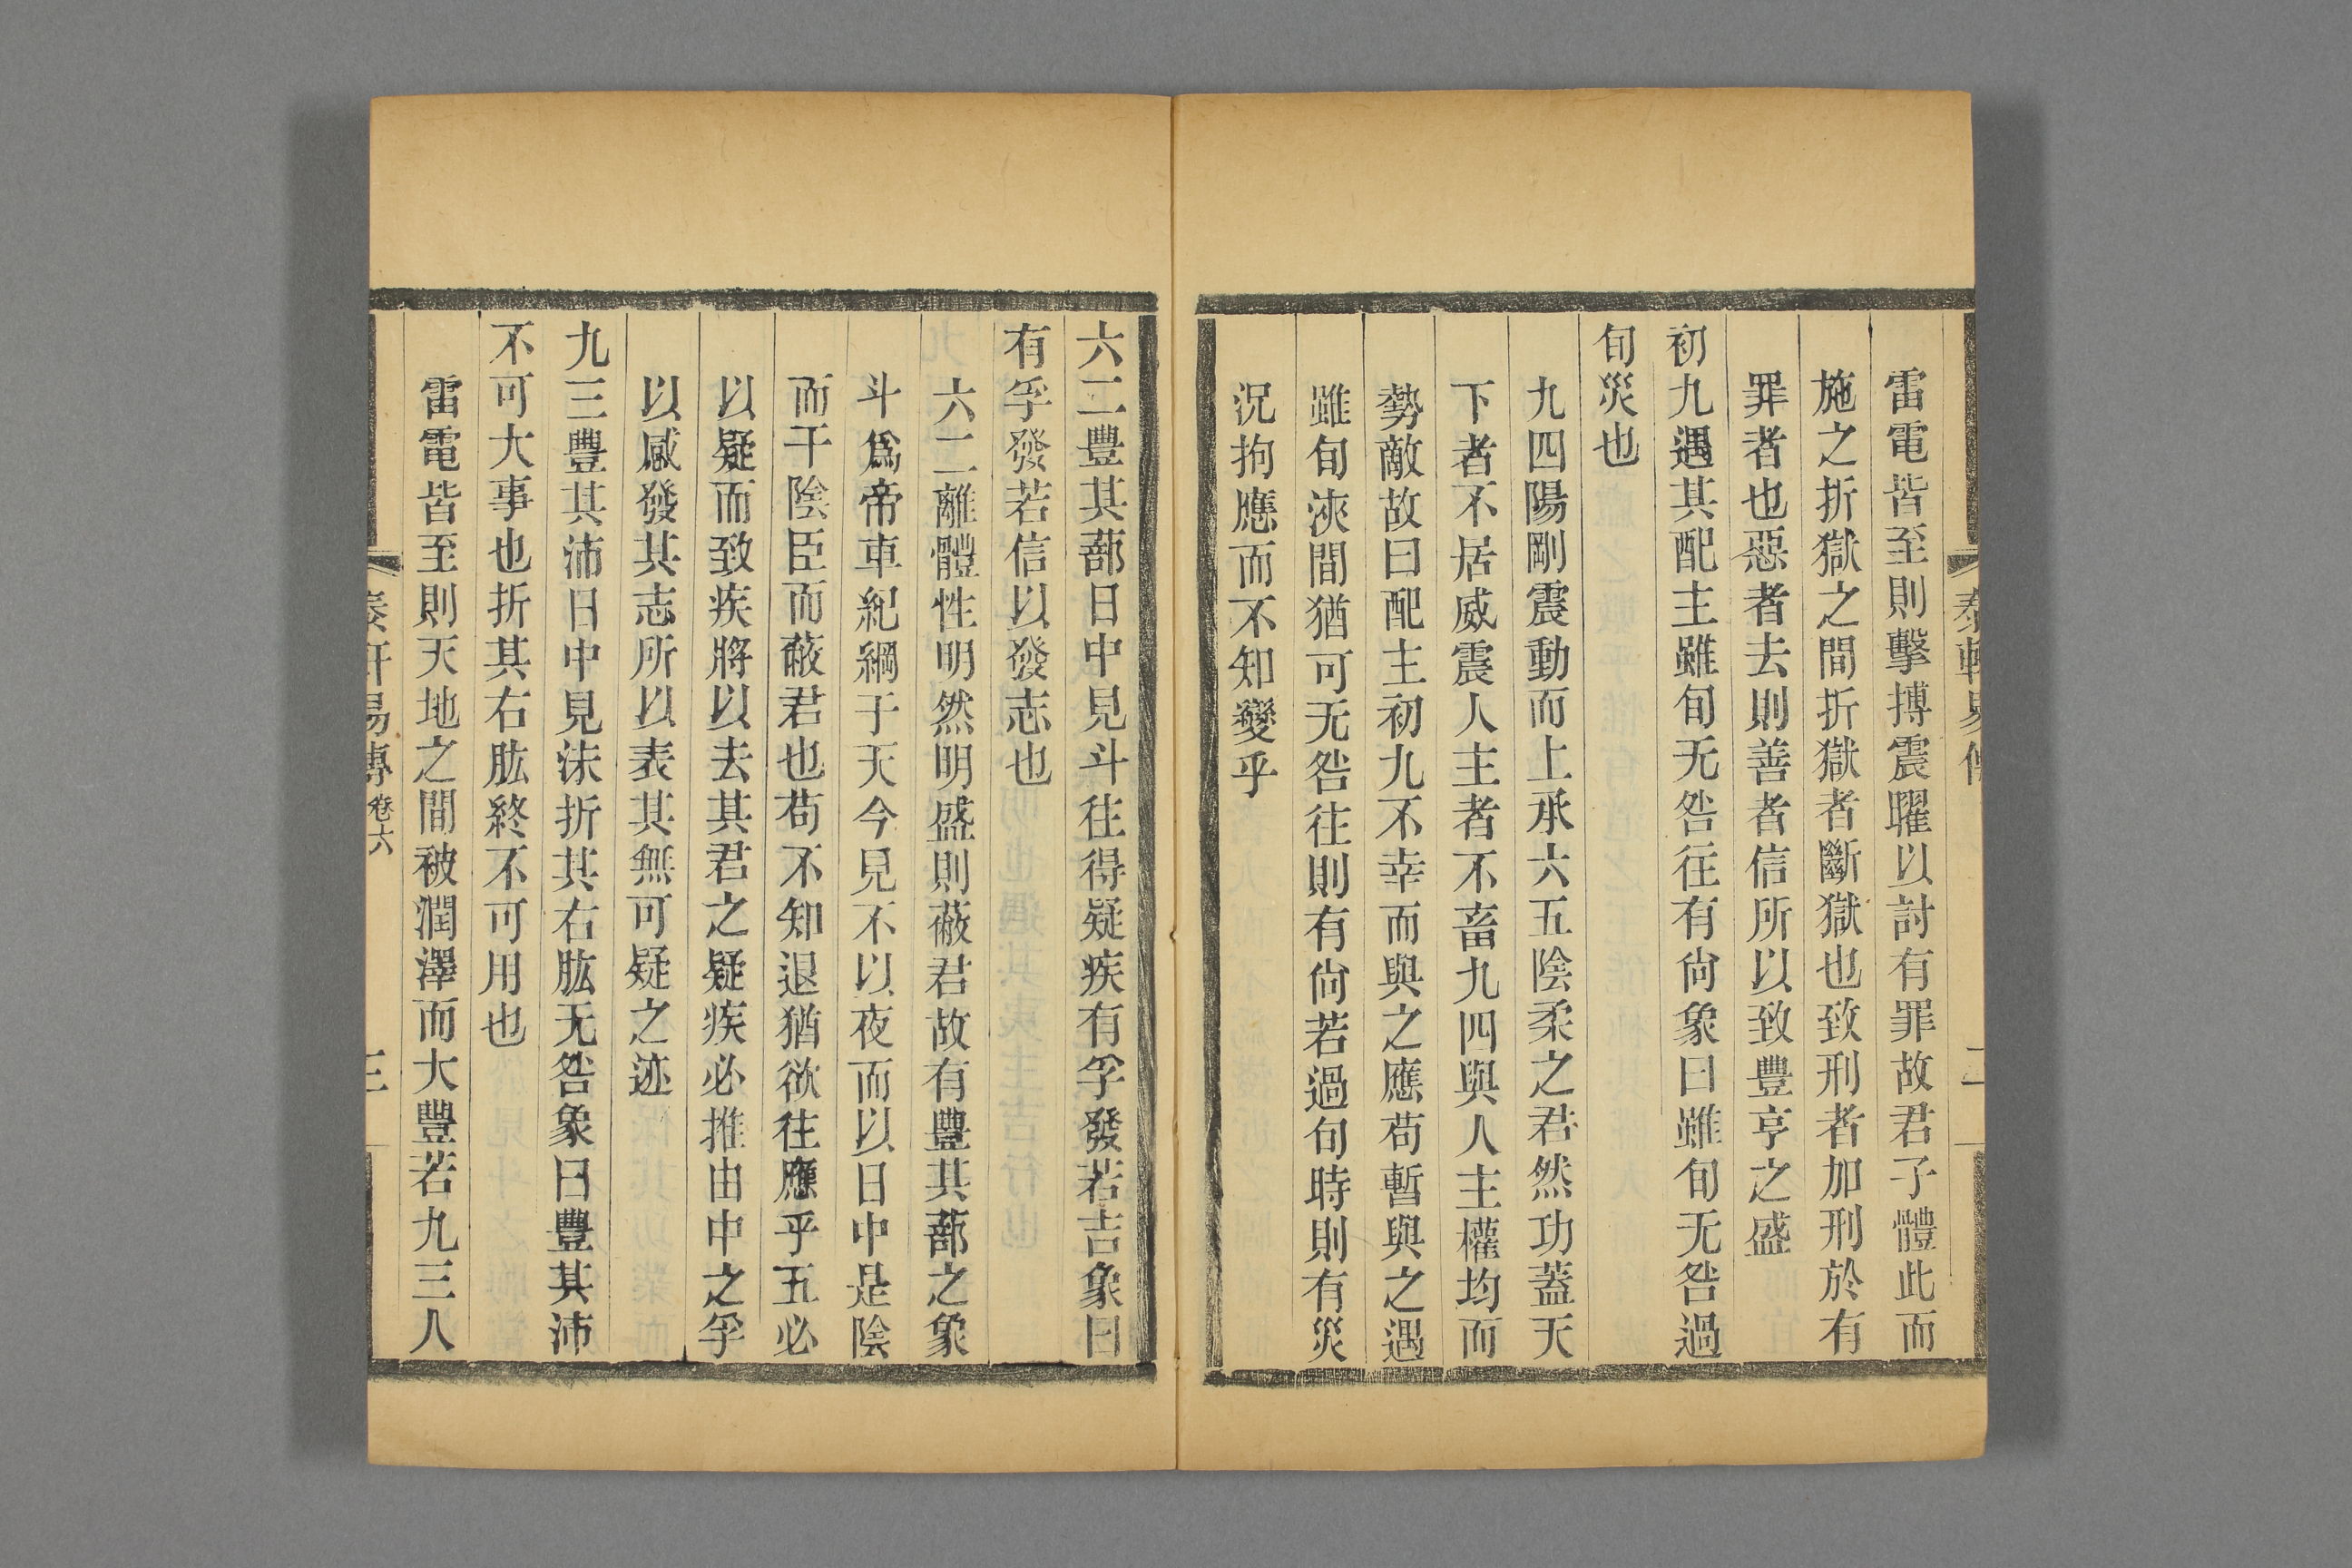 雷電皆至則擊搏震曜以討有罪故君子體此而
施之折獄之間折獄者斷獄也致刑者加刑於有
罪者也惡者去則善者信所以致豐亨之盛
初九遇其配主雖旬无咎往有尙象曰雖旬无咎過
旬災也
九四陽剛震動而上承六五陰柔之君然功蓋天
下者不居威震人主者不畜九四與人主權均而
勢敵故曰配主初九不幸而與之應苟暫與之遇
雖旬浹間猶可无咎往則有尙若過旬時則有災
況拘應而不知變乎
六二豐其蔀日中見斗往得疑疾有孚發若吉象曰
有孚發若信以發志也
六二離體性明然明盛則蔽君故有豐其蔀之象
斗爲帝車紀綱于天今見不以夜而以日中是陰
而干陰臣而蔽君也苟不知退猶欲往應乎五必
以疑而致疾將以去其君之疑疾必推由中之孚
以感發其志所以表其無可疑之迹
九三豐其沛日中見沬折其右肱无咎象曰豐其沛
不可大事也折其右肱終不可用也
雷電皆至則天地之間被潤澤而大豐若九三人
易傳 卷六 三